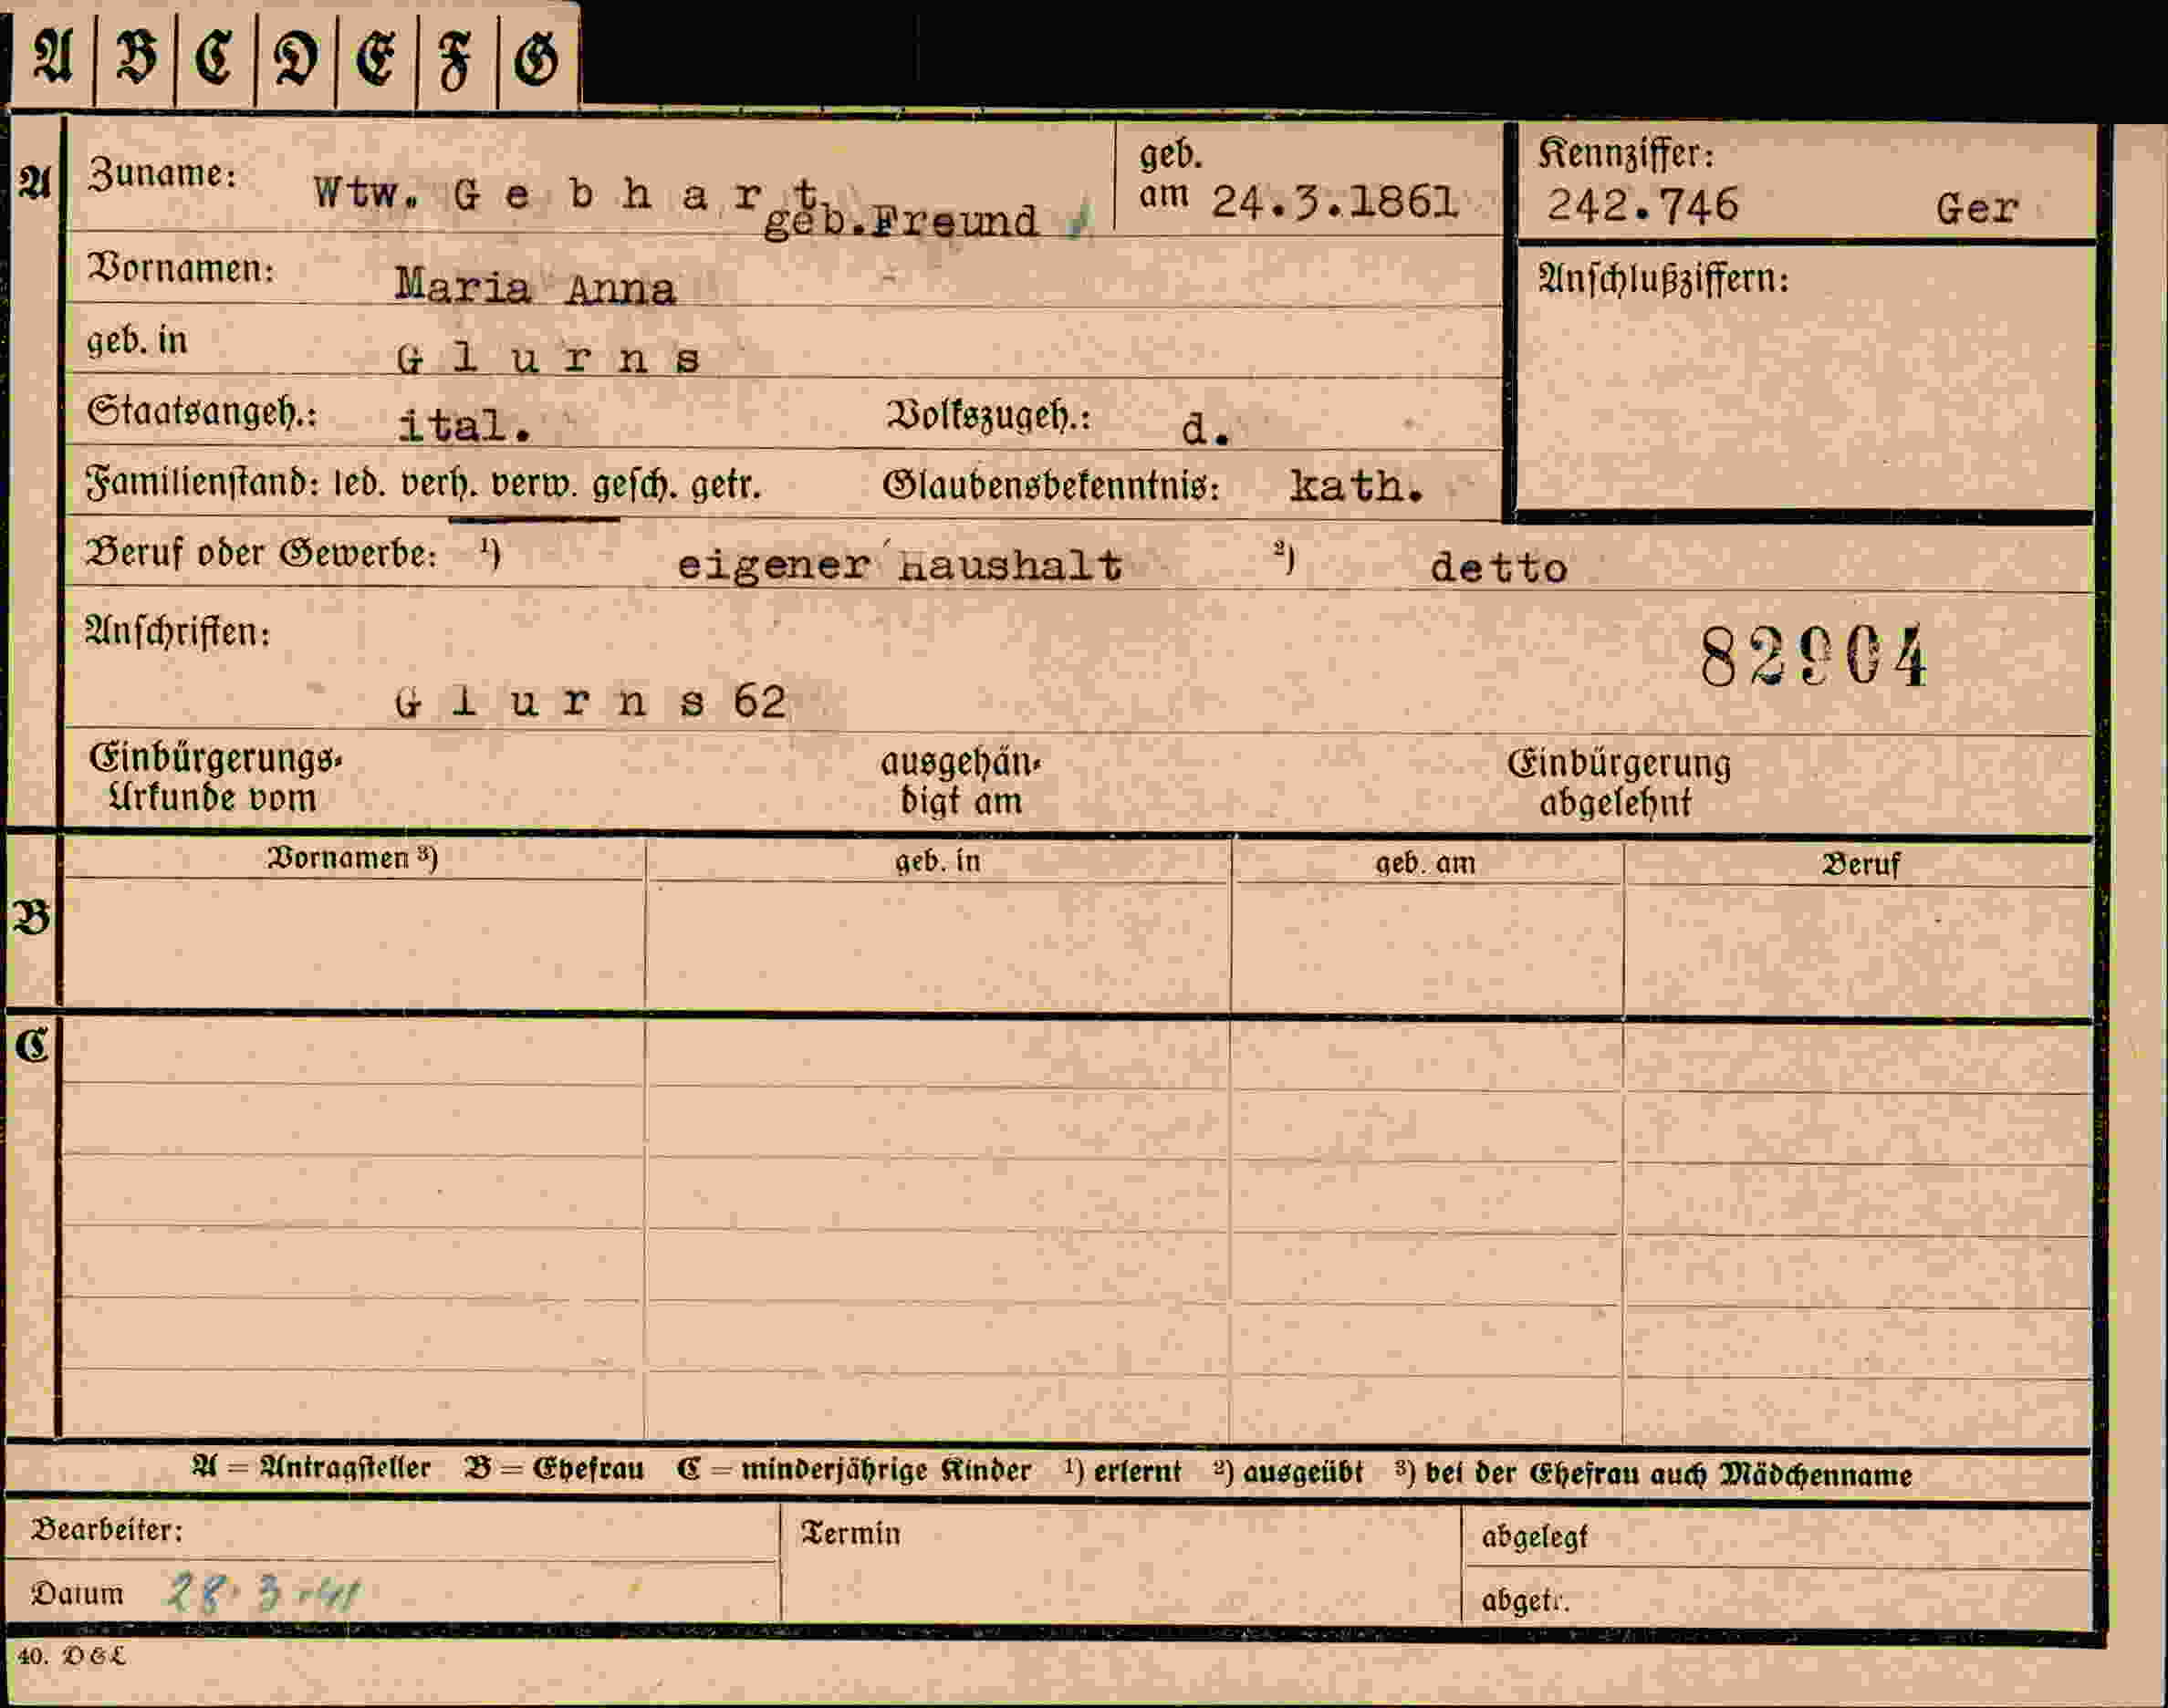 A B C D E F G
A Zuname: Wtw. G e b h a r t geb. am 24.3.1861 Kennziffer: 242.746 Ger
geb.Freund
Vornamen: Maria Anna Anschlußziffern:
geb. in G l u r n s
Staatsangeh.: ital. Volkszugeh.: d.
Familienstand: led. verh. verw. gesch. getr. Glaubensbekenntnis: kath.
Beruf oder Gewerbe: 1) eigener Haushalt 2) detto
Anschriften: 82904
G l u r n s 62
Einbürgerungs- ausgehän- Einbürgerung
Urkunde vom digt am abgelehnt
Vornamen 3) geb. in geb. am Beruf
B
C
A = Antragsteller B = Ehefrau C = minderjährige Kinder 1) erlernt 2) ausgeübt 3) bei der Ehefrau auch Mädchenname
Bearbeiter: Termin abgelegt
Datum 28.3.41 abgetr.
40. D & L